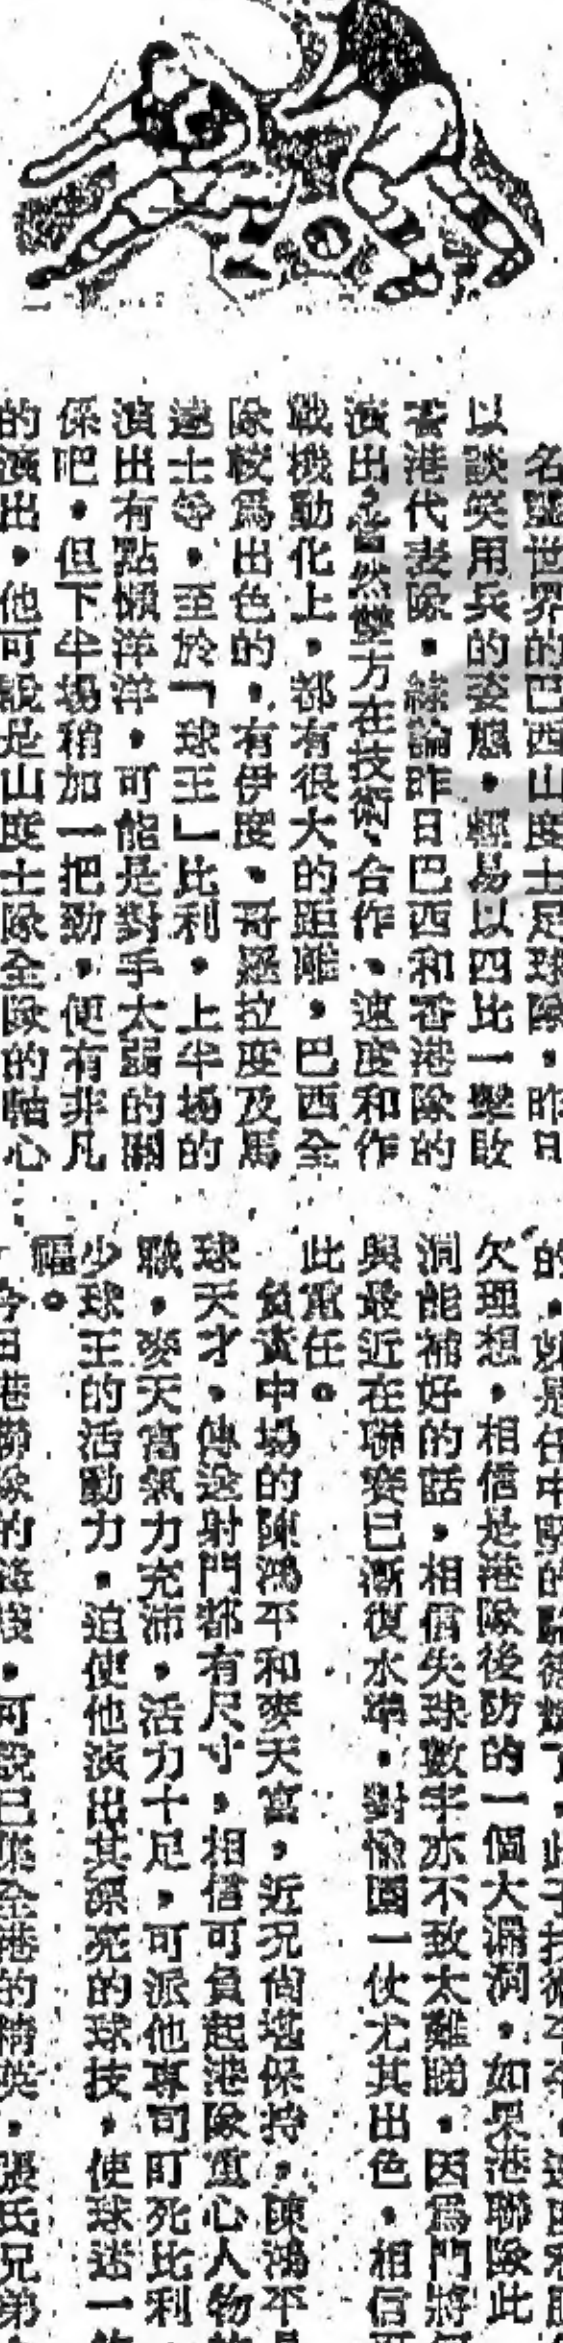 名震世界的巴西山度士足球隊，昨日
以談笑用兵的姿態，輕易以四比一擊敗
香港代表隊。綜論昨日巴西和香港隊的
演出，當然雙方在技術、合作、速度和作
戰機動化上，都有很大的距離，巴西全
隊較爲出色的，有伊度，哥羅拉度及馬
達士等，至於「球王」比利，上半場的
演出有點懶洋洋，可能是對手太弱的關
係吧，但下半場稍加一把勁，便有非凡
的演出，他可說是山度士隊全隊的軸心
欠理想，相信是港隊後防的一個大漏洞，如果港聯隊此
洞能補好的話，相信失球數字亦不致太難睇，因爲門將
與最近在聯賽已漸復水準，對愉園一仗尤其出色，相信
此重任。
負責中場的陳鴻平和麥天富，近況尚堪保持，陳鴻平
球天才，傳送射門都有尺寸，相信可負起港隊重心人物
職，麥天富氣力充沛，活力十足，可派他專司盯死比利
少球王的活動力，迫使他演出其漂亮的球技，使球迷一
福。
今日港聯隊的鋒線，可說已集全港的精英，張氏兄弟